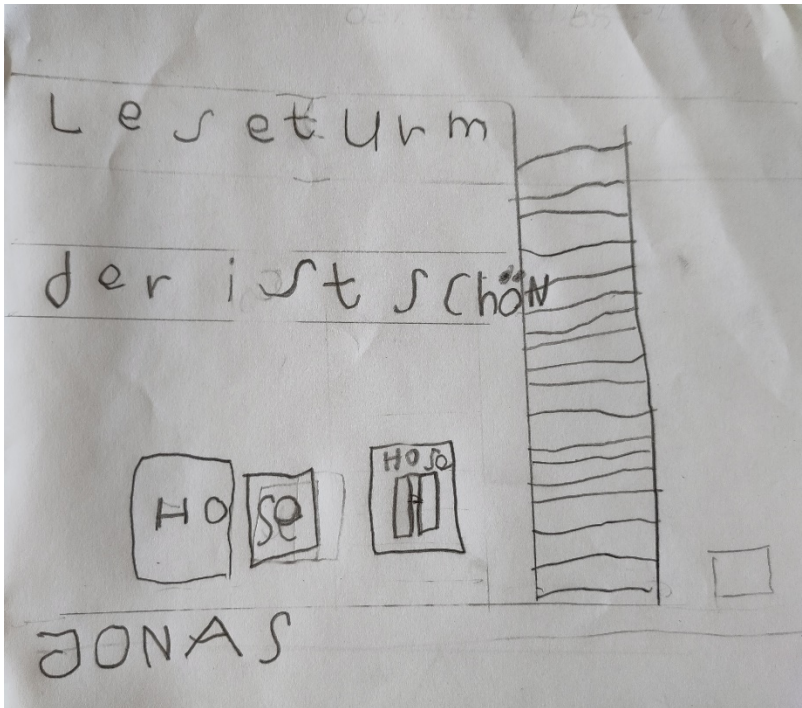 Leseturm
der ist schöN
HO se HOSe
JONAS